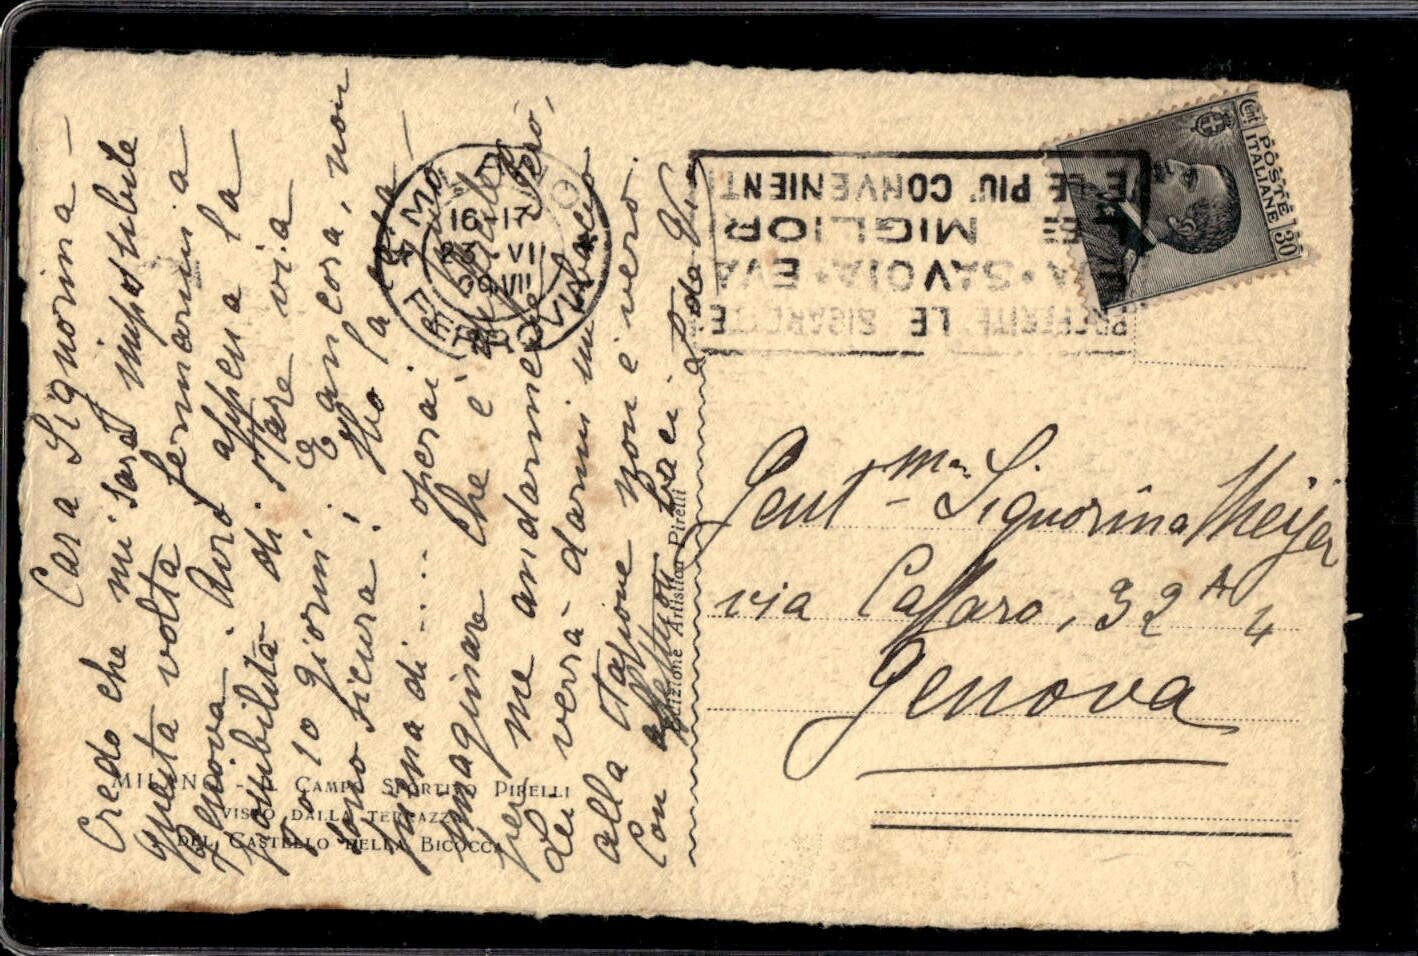 Cara Signorina -
Credo che mi sarà impossibile
questa volta fermarmi a
Genova. Avrò appena la
possibilità di stare via
9 o 10 giorni e ancora, non
sono sicura! Ho la casa
piena di .... operai -
immaginare che è
per me andarmene Però,
Lei verrà darmi un bacio
alla stazione non è vero?
Con affettuosi baci a
MILANO - CAMPO SPORTIVO PIRELLI
VISTO DALLA TERRAZZA
DEL CASTELLO DELLA BICOCCA
Edizione Artistica Pirelli
MILANO
16-17
VII
FERROVIA
PREFERITE LE SIGARETTE
SAVOIA · EVA
MIGLIORI
LE PIU' CONVENIENTI
POSTE ITALIANE
Cent 30
Gent.ma Signorina Meijer
via Caffaro, 32 A 4
Genova